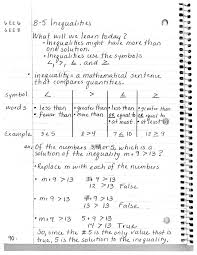 6EE6 8-5 Inequalities
6EE8
What will we learn today?
• Inequalities might have more than
one solution.
• Inequalities use the symbols
<, >, ≤, and ≥
• inequality = a mathematical sentence
that compares quantities.
Symbol < > ≤ ≥
words • less than • greater than • less than • greater than
• fewer than • more than or equal to or equal to
• at most • at least
Example 3 < 5 8 > 4 7 ≤ 10 12 ≥ 9
ex) Of the numbers 3, 4, or 5, which is a
solution of the inequality m + 9 > 13?
• Replace m with each of the numbers.
• m + 9 > 13 3 + 9 > 13
12 > 13 False
• m + 9 > 13 4 + 9 > 13
13 > 13 False.
• m + 9 > 13 5 + 9 > 13
14 > 13 True
So, since the # 5 is the only value that is
true, 5 is the solution to the inequality.
90